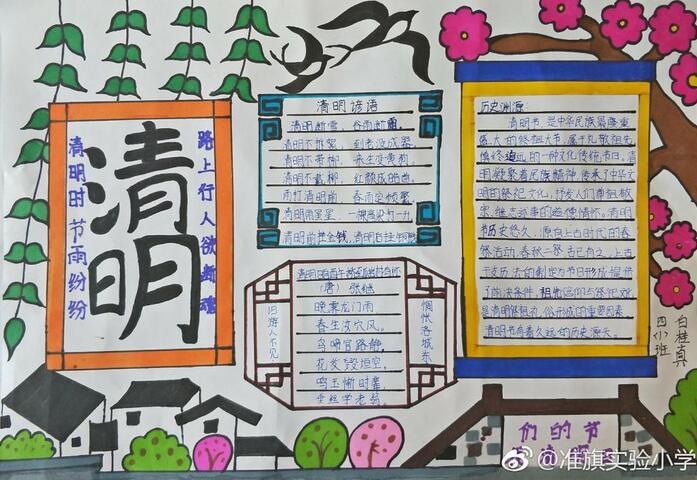 清明
路上行人欲断魂
清明时节雨纷纷
清明谚语
清明断雪，谷雨断霜。
清明不戴柳，来生变黄狗，
清明不戴柳，红颜成皓首，
雨打清明前，春雨定频繁，
历史渊源
清明节，是中华民族最隆重
盛大的祭祖大节，属于礼敬祖先、
慎终追远的一种文化传统节日，清
明凝聚着民族精神，传承了中华文
明的祭祀文化，抒发人们尊祖敬
宗、继志述事的道德情怀。清明
节历史悠久，源自上古时代的春
祭活动，春秋二祭，古已有之，上古
干支历法的制定为节日形成提供
了前决条件，祖先信仰与祭祀文
是清明祭祖礼俗形成的重要因素
清明节有着久远的历史源头。
(唐) 张继
晚霁龙门雨，
春生汝穴风。
鸟啼官路静，
花发毁垣空。
鸣玉惭时辈，
惆怅洛城东
旧游人不见
四(1)班
白桂真
们的节
@准旗实验小学